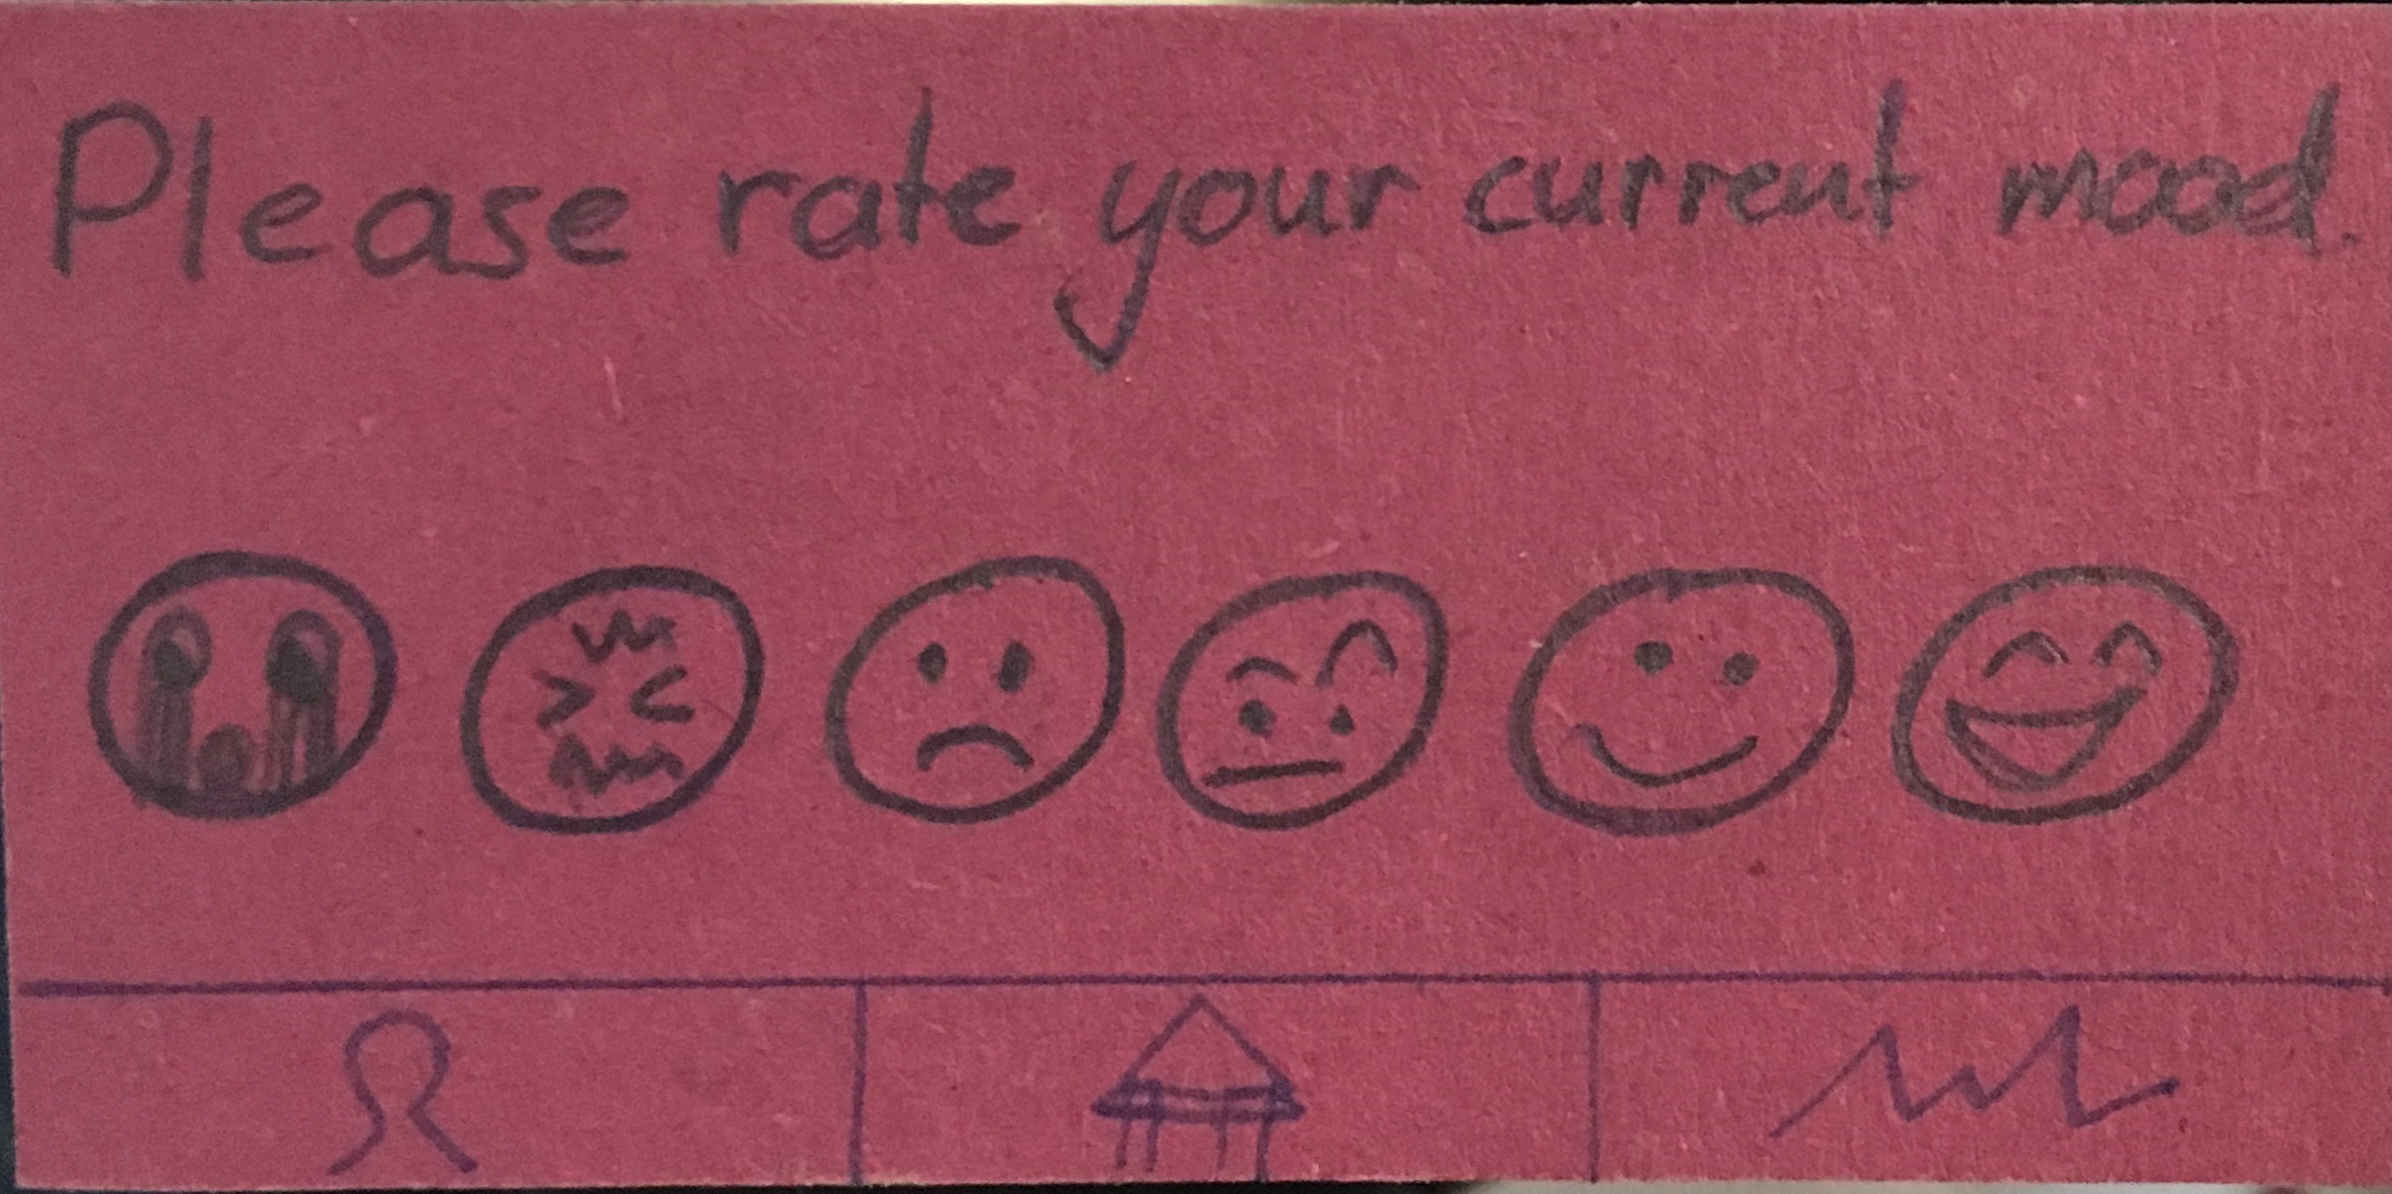 Please rate your current mood.